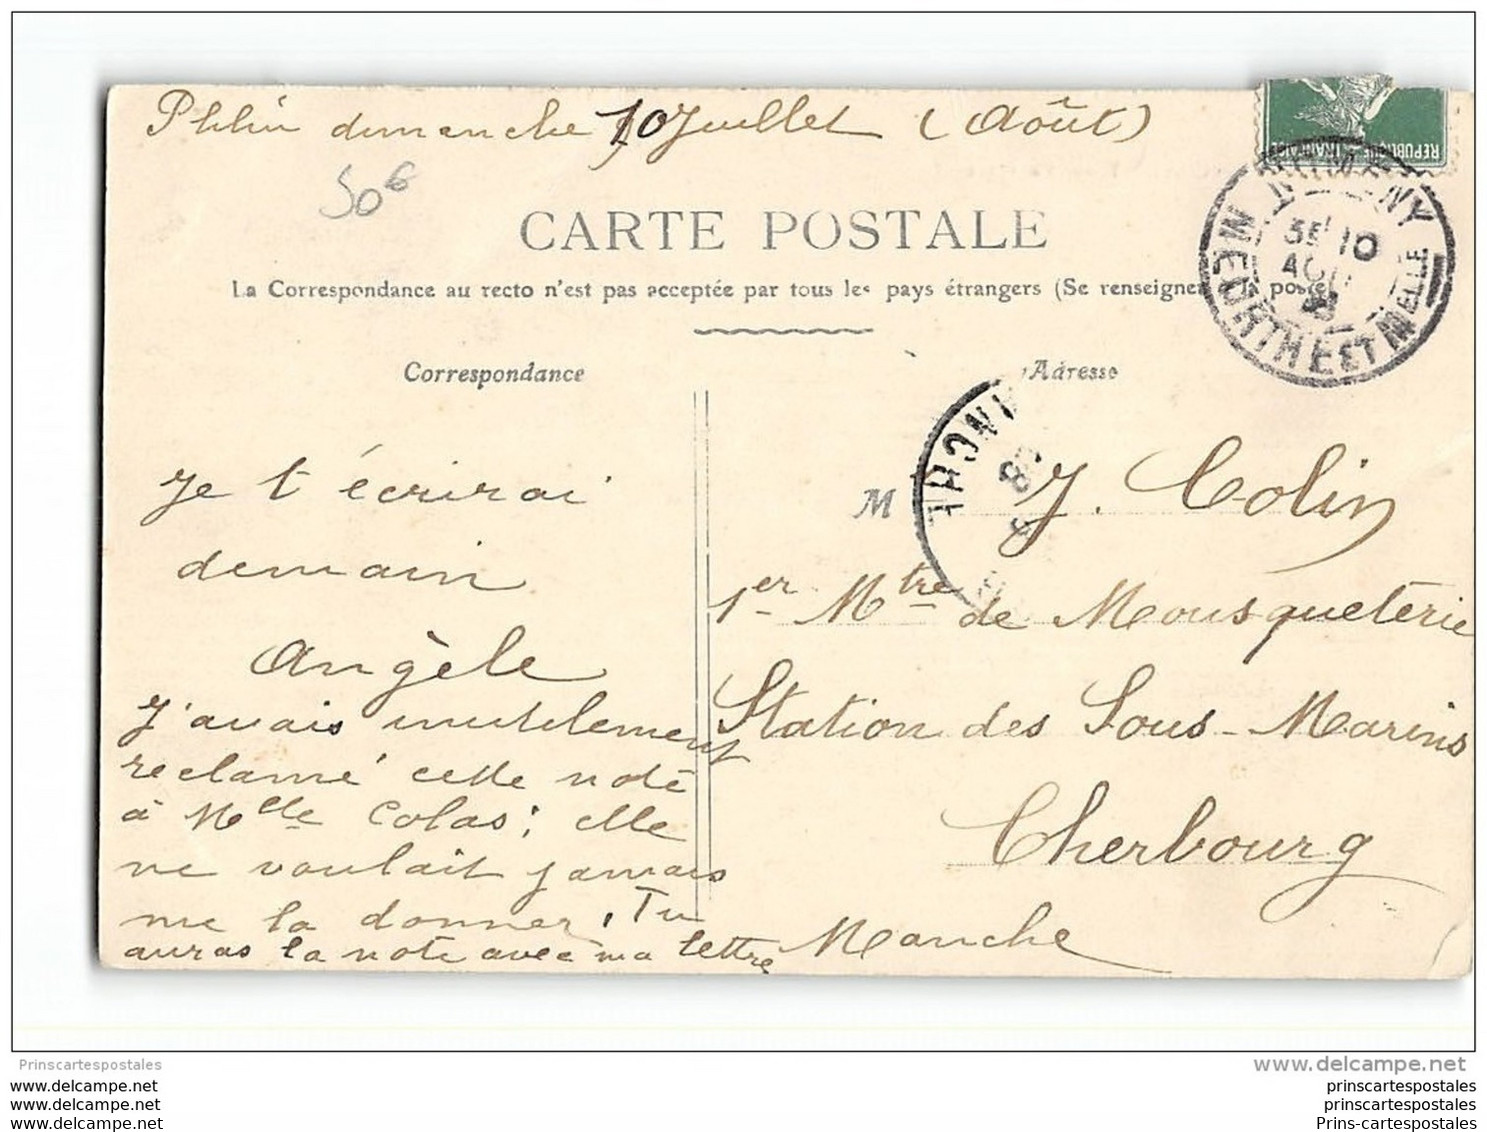 Phlin dimanche 10 Juillet (Août)
50 6
RÉPUBLIQUE FRANÇAISE
CARTE POSTALE
La Correspondance au recto n'est pas acceptée par tous les pays étrangers (Se renseigner à la poste)
MEURTHE ET M ELLE
10
Correspondance
Adresse
Je t'écrirai
demain
Angèle
J'avais inutilement
reclamé cette note
à Mlle Colas; elle
ne voulait jamais
me la donner. Tu
auras la note avec ma lettre
M J. Colin
1er Mtre de Mousqueterie
Station des Sous-Marins
Cherbourg
Manche
Prinscartespostales
www.delcampe.net
www.delcampe.net
www.delcampe.net
www.delcampe.net
prinscartespostales
prinscartespostales
Prins-cartespostales